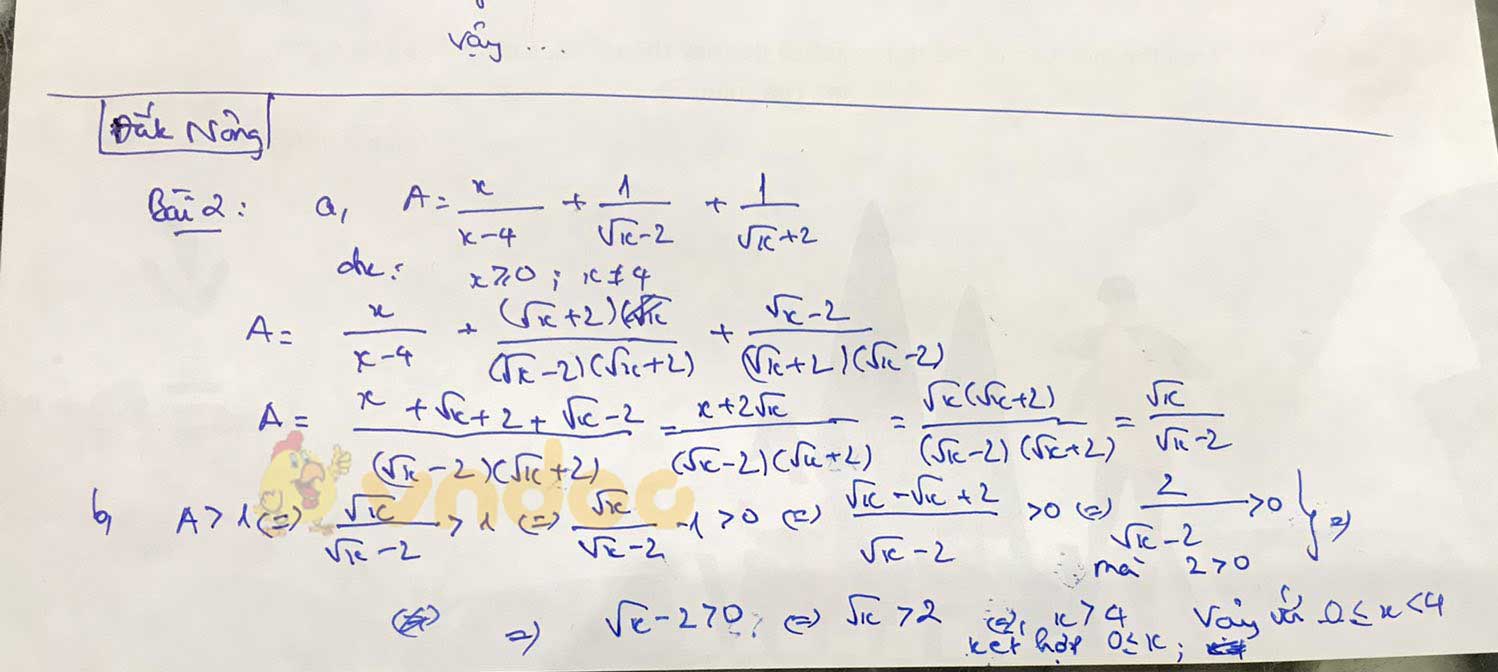 Vậy ...
Đắk Nông
Bài 2: a, A = x/(x-4) + 1/(√x-2) + 1/(√x+2)
đk: x ≥ 0 ; x ≠ 4
A = x/(x-4) + (√x+2)/((√x-2)(√x+2)) + (√x-2)/((√x+2)(√x-2))
A = (x + √x+2 + √x-2)/((√x-2)(√x+2)) = (x+2√x)/((√x-2)(√x+2)) = (√x(√x+2))/((√x-2)(√x+2)) = √x/(√x-2)
vndoc
b, A > 1 (=) √x/(√x-2) > 1 (=) √x/(√x-2) - 1 > 0 (=) (√x-√x+2)/(√x-2) > 0 (=) 2/(√x-2) > 0 } =)
mà 2 > 0
=) √x-2 > 0 (=) √x > 2 (=) x > 4 Vậy với 0 ≤ x < 4
kết hợp 0 ≤ x ;